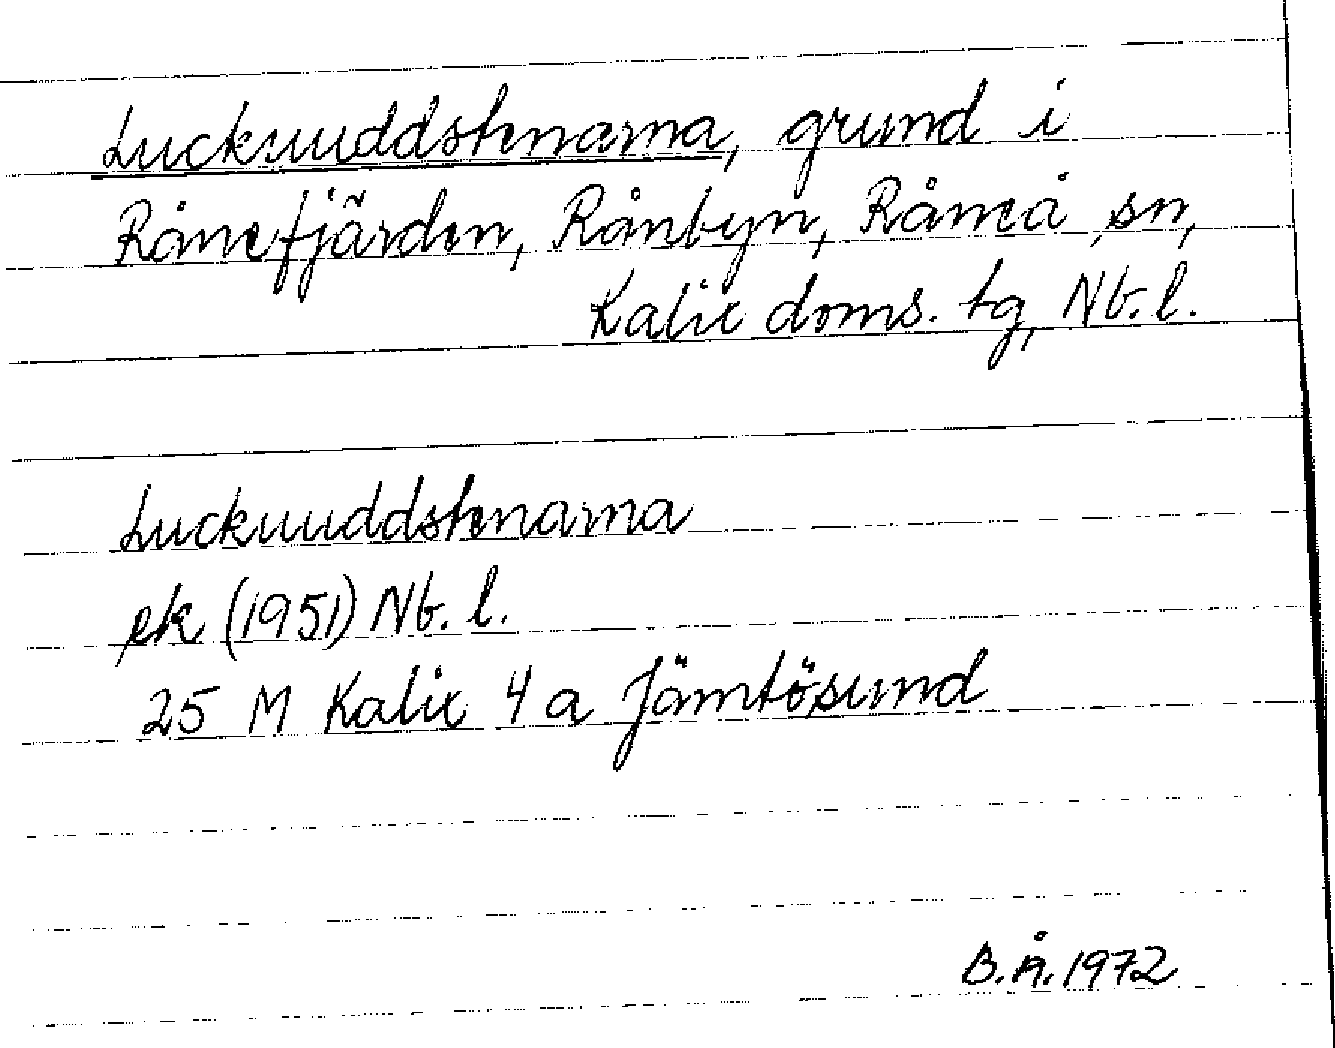 Luckuuddstenarna, grund i
Rånefjärden, Rånbyn, Råneå sn,
Kalix doms. tg, Nb. l.
Luckuuddstenarna
ek (1951) Nb. l.
25 M Kalix 4 a Jämtösund
B.Å. 1972